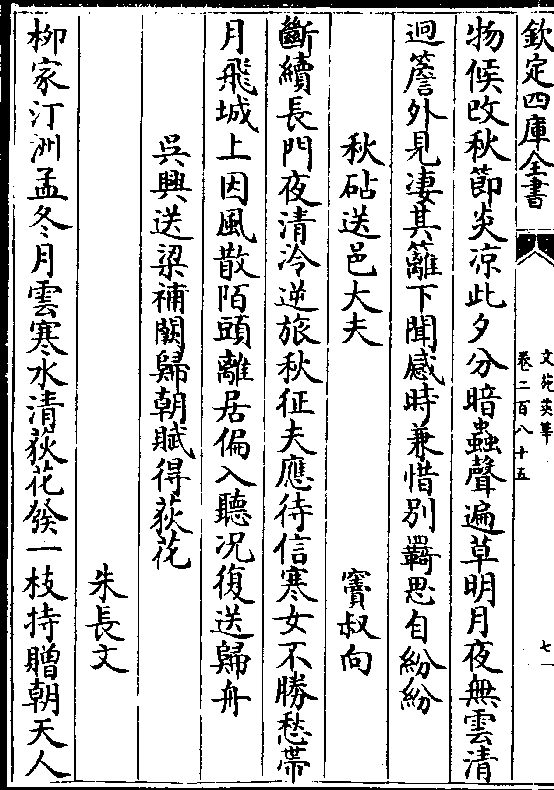 欽定四庫全書
文苑英華
卷二百八十五
七
物候改秋節炎凉此夕分暗蟲聲遍草明月夜無雲清
迥簷外見凄其籬下聞感時兼惜别羇思自紛紛
秋砧送邑大夫
竇叔向
斷續長門夜清冷逆旅秋征夫應待信寒女不勝愁帶
月飛城上因風散陌頭離居偏入聽况復送歸舟
吳興送梁補闕歸朝賦得荻花
朱長文
柳家汀洲孟冬月雲寒水清荻花發一枝持贈朝天人